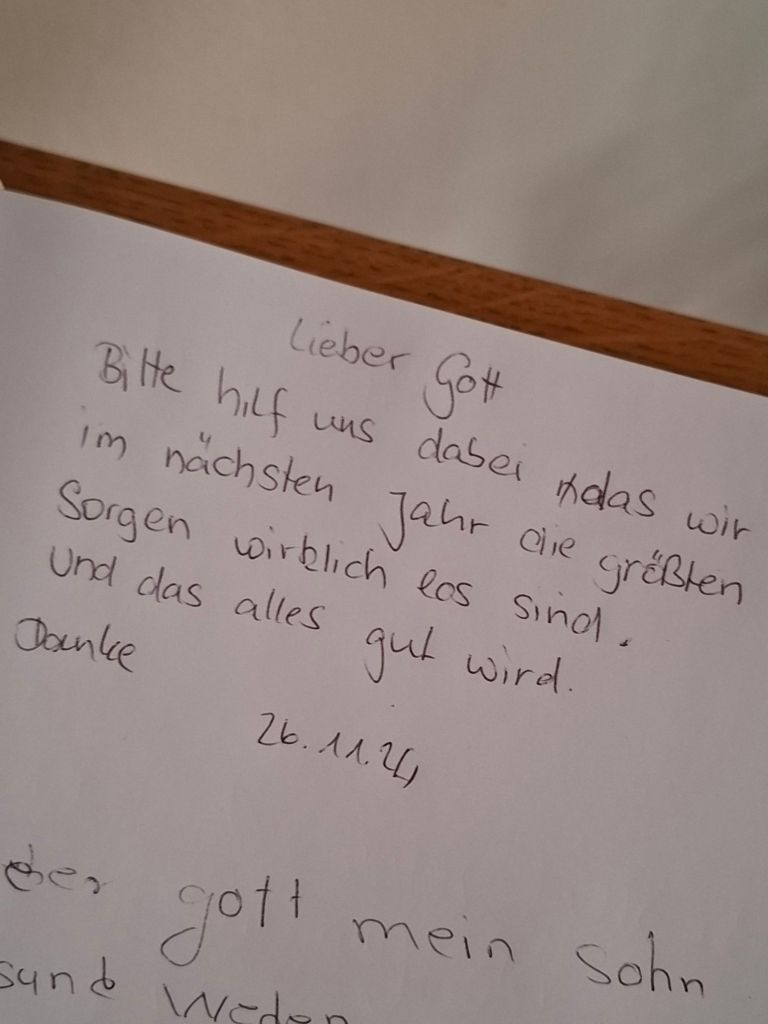 Lieber Gott
Bitte hilf uns dabei das wir
im nächsten Jahr die größten
Sorgen wirklich los sind.
Und das alles gut wird.
Danke
26.11.24
gott mein Sohn